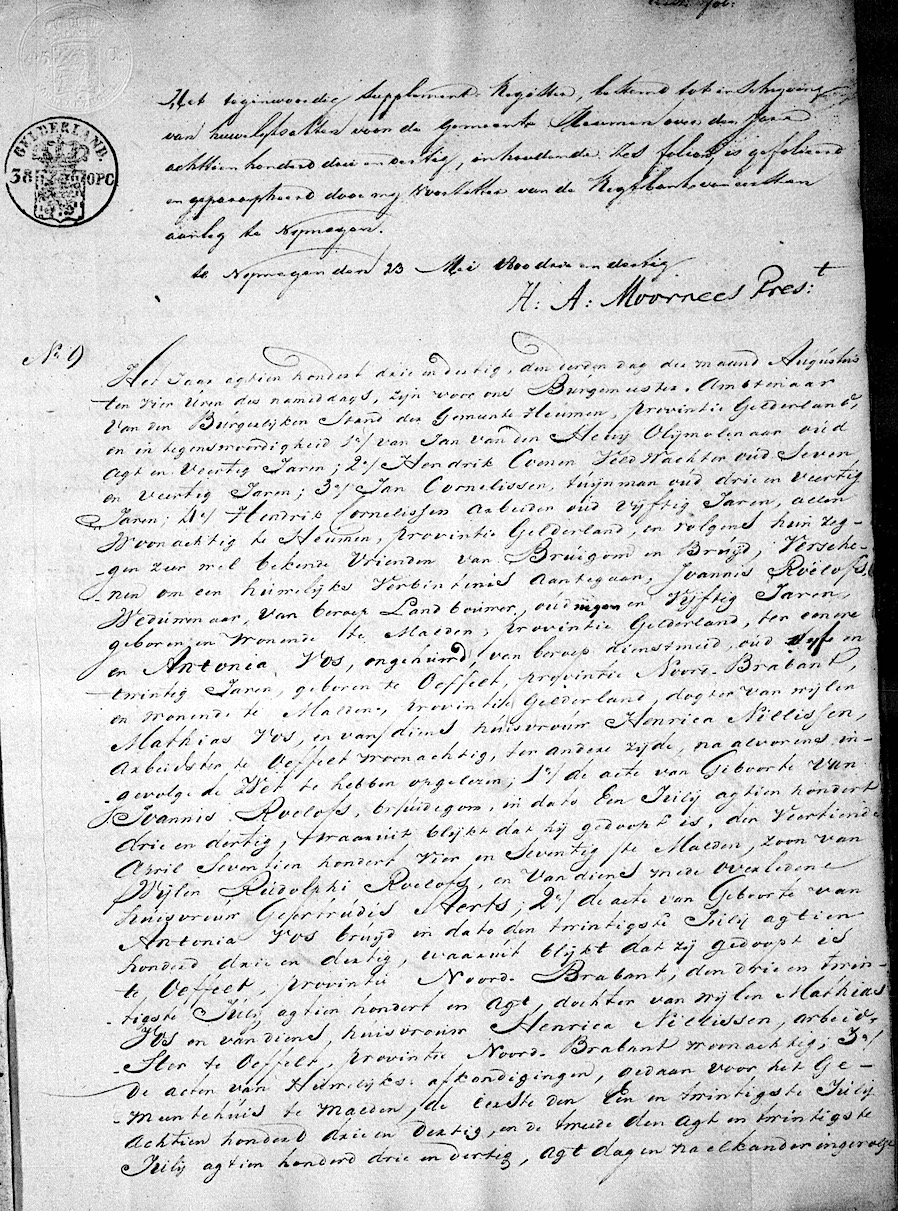 GELDERLAND.
38 OPC.
Het tegenwoordig Supplement-Register, bestemd tot inschrijving
van huwelijksakten voor de Gemeente Heumen over den Jare
achttienhonderd drie en dertig, inhoudende Zes folios, is gefolieerd
en geparapheerd door mij Voorzitter van de Regtbank van eersten
aanleg te Nijmegen.
te Nijmegen den 23 Mei 1800 drie en dertig
H. A: Moorrees Prest
No. 9
Het Jaar agtien hondert drie en dertig, den eersten dag der maand Augustus
ten vier uren des nameddags, zijn voor ons Burgemeester, Ambtenaar
van den Burgerlijken Stand der Gemeente Heumen, Provintie Gelderland,
en in tegenswoordigheid 1e/ van Jan van den Heuy Olijmolenaar oud
agt en veertig Jaren; 2e/ Hendrik Coenen Veld Wachter oud Seven
en veertig Jaren; 3e/ Jan Cornelissen, tuijnman oud drie en veertig
Jaren; 4e/ Hendrik Cornelissen Arbeider oud vijftig Jaren, allen
Woonachtig te Heumen, Provintie Gelderland, en volgens hun zeg-
-gen zeer wel bekende Vrienden van Bruigom en Bruijd, Versche-
-nen om een huwelijks Verbintenis aantegaan, Joannis Roelofs
Weduwenaar, van beroep Landbouwer, oud negen en Vijftig Jaren,
geboren en wonende te Malden, Provintie Gelderland, ter eenre
en Antonia Vos, ongehuwd, van beroep dienstmeid, oud vijf en
twintig Jaren, geboren te Oeffelt, provintie Noord-Brabant,
en wonende te Malden, Provintie Gelderland, dogter van wijlen
Mathias Vos, en van diens huisvrouw Henrica Nillissen,
Arbeidster te Oeffelt woonachtig, ter andere zijde, na alvorens in-
-gevolge de Wet te hebben opgelezen; 1e/ de acte van Geboorte van
Joannis Roelofs, bruidegom, in dato Een Julij agtien hondert
drie en dertig, waaruit blijkt dat hij gedoopt is, den Veertiende
April Seventien hondert Vier en Seventig te Malden, zoon van
Wijlen Rudolphi Roelofs, en van diens mede overledene
huisvrouw Gertrudis Aerts; 2e/ de acte van Geboorte van
Antonia Vos bruijd in dato den twintigste Julij agtien
honderd drie en dertig, waaruit blijkt dat zij gedoopt is
te Oeffelt, provintie Noord-Brabant, den drie en twin-
-tigste Julij agtien hondert en agt, dochter van wijlen Mathias
Vos en van diens huisvrouw Henrica Nillissen, arbeid-
-ster te Oeffelt, provintie Noord-Brabant woonachtig; 3e/
de acten van Huwelijks-afkondigingen, gedaan voor het Ge-
-meentehuis te Malden, de eerste den Een en twintigste Julij
achtien honderd drie en dertig, en de tweede den agt en twintigste
Julij agtien honderd drie en dertig, agt dagen na elkander ingevolge